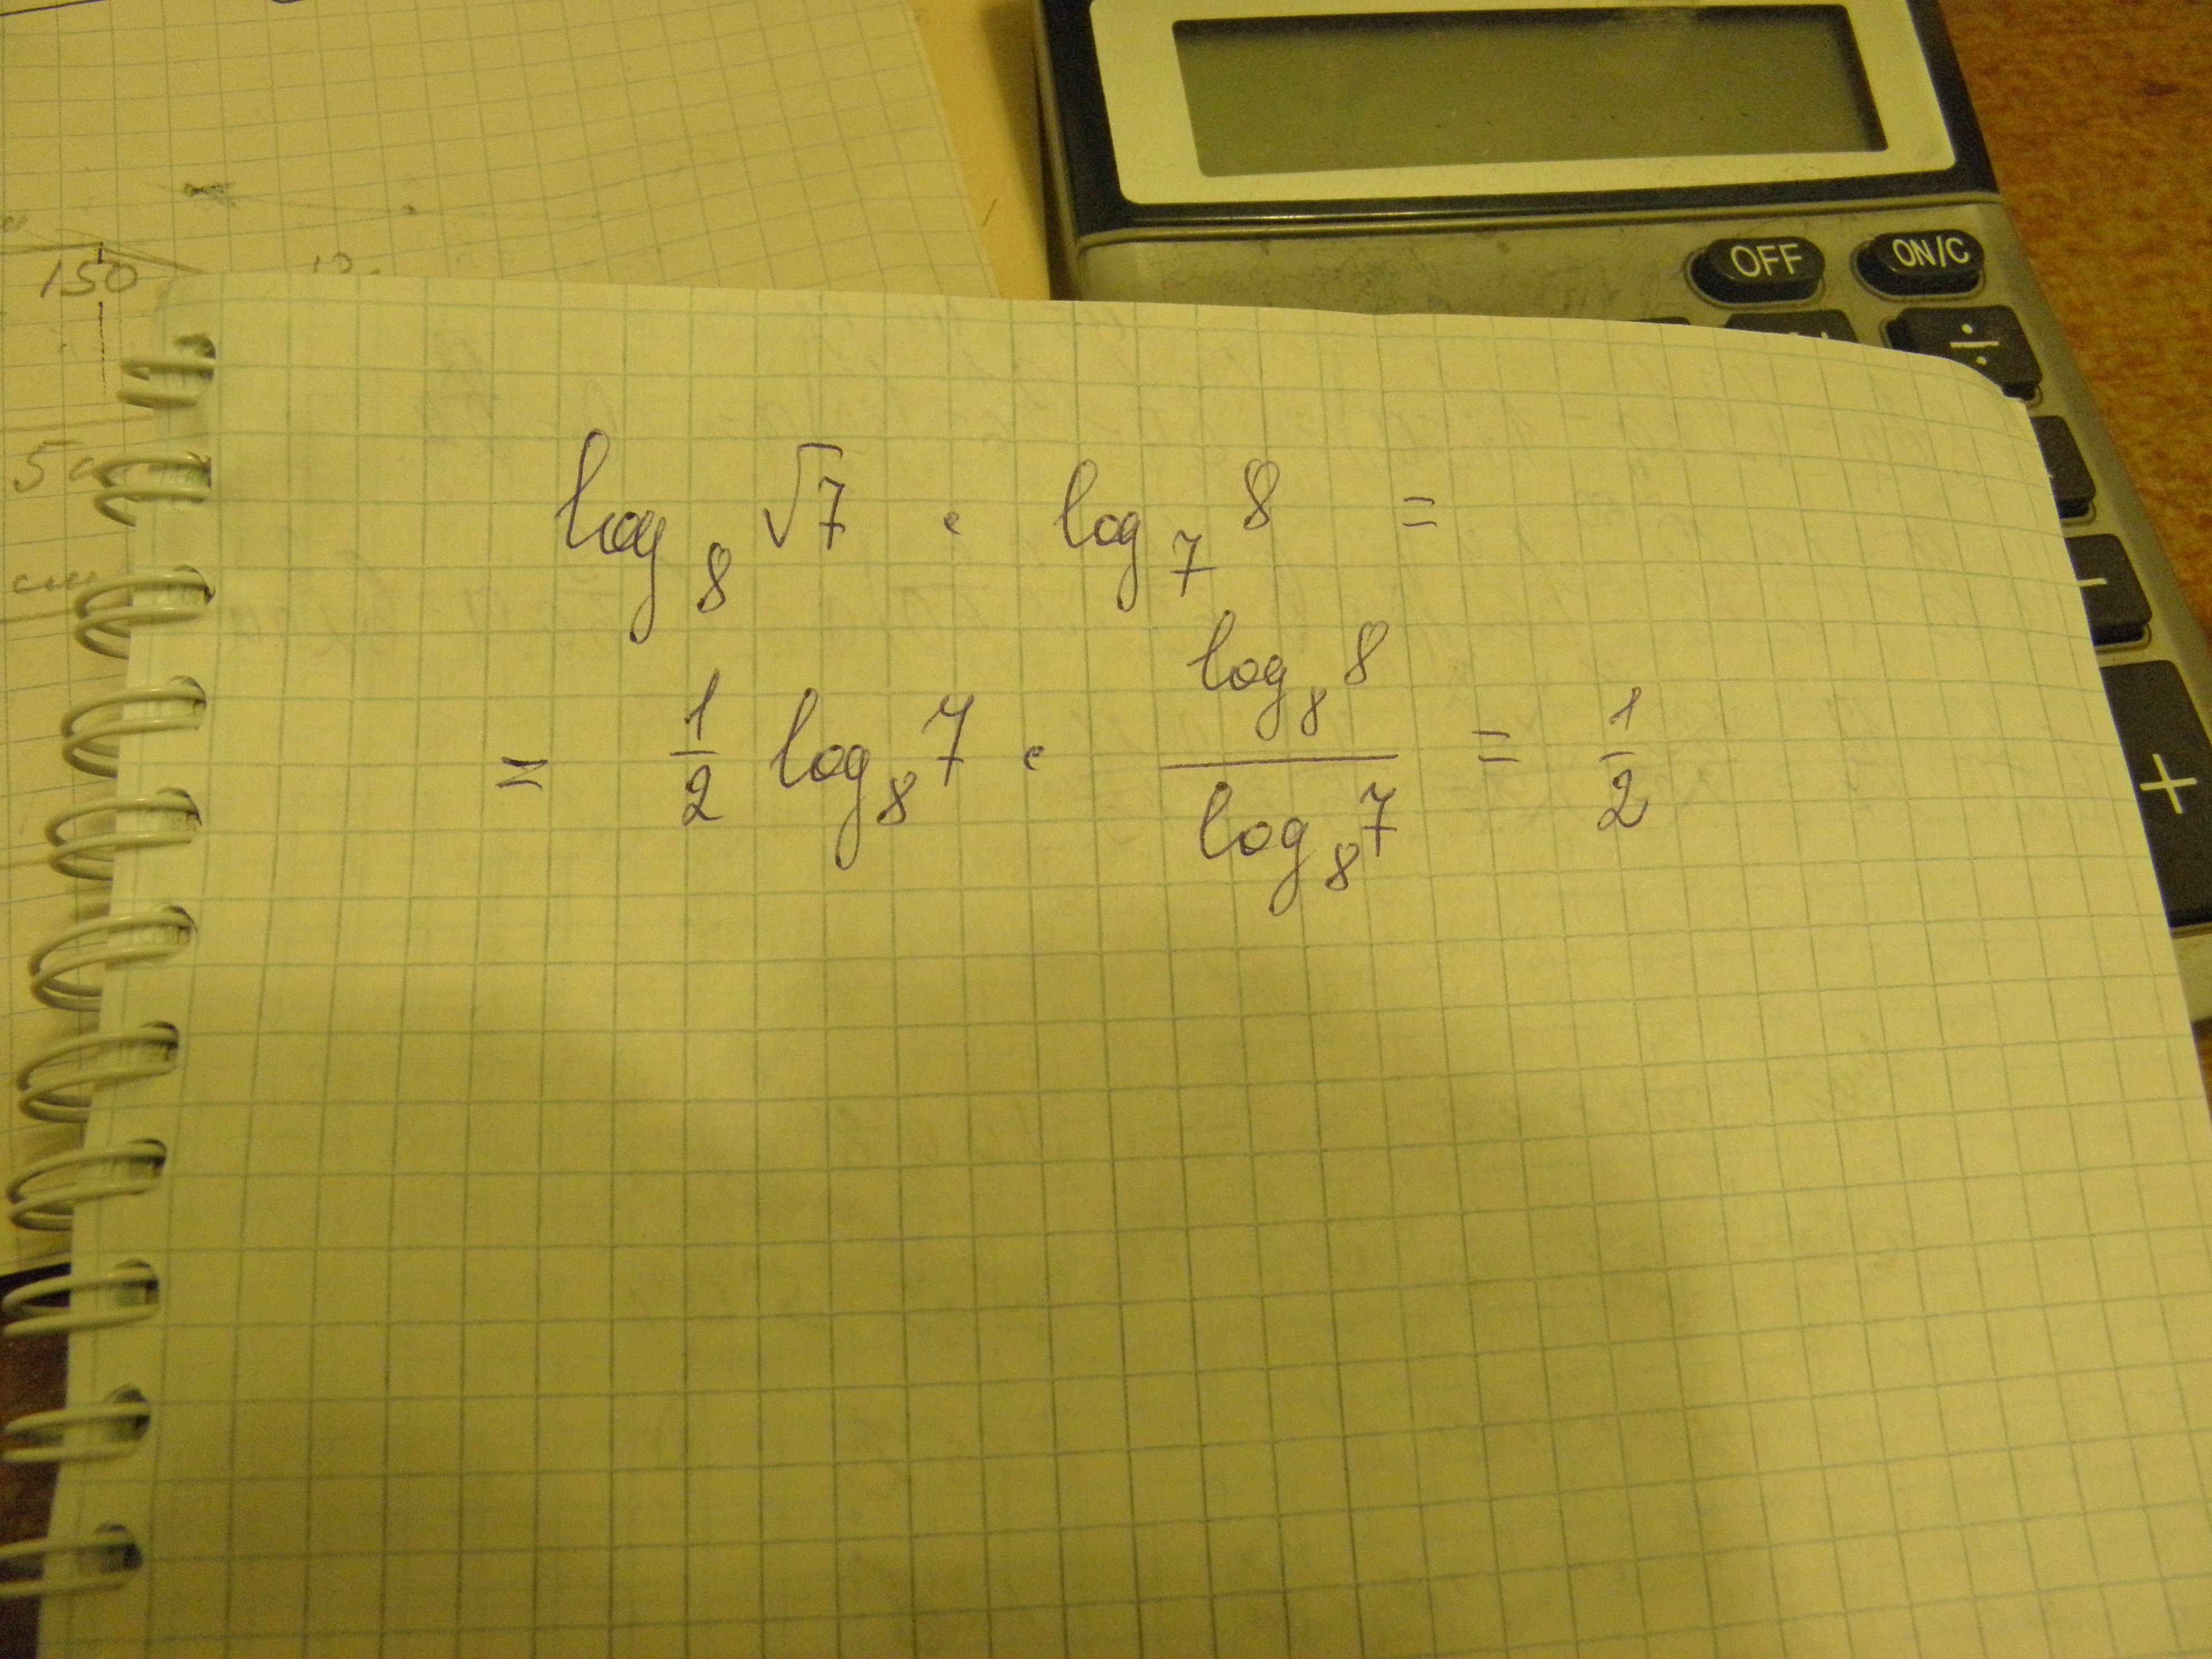 150
OFF ON/C
÷
5
log₈ √7 · log₇ 8 =
= 1/2 log₈ 7 · log₈ 8 / log₈ 7 = 1/2
−
+